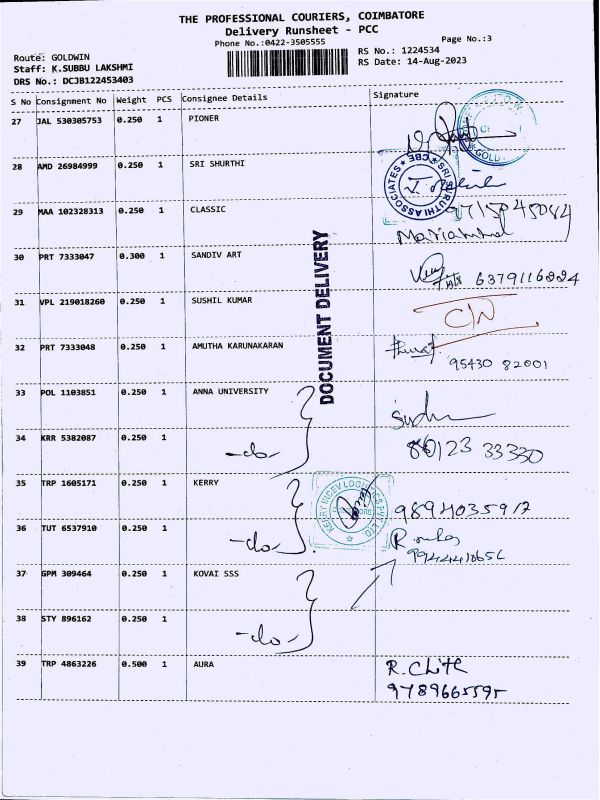 THE PROFESSIONAL COURIERS, COIMBATORE
Delivery Runsheet - PCC
Phone No.:0422-3505555
Page No.:3
Route: GOLDWIN
Staff: K.SUBBU LAKSHMI
DRS No.: DCJB122453403
RS No.: 1224534
RS Date: 14-Aug-2023
S No Consignment No Weight PCS Consignee Details Signature
27 JAL 530305753 0.250 1 PIONER
28 AMD 26984999 0.250 1 SRI SHURTHI
29 MAA 102328313 0.250 1 CLASSIC
9715045084
30 PRT 7333047 0.300 1 SANDIV ART
6379116224
31 VPL 219018260 0.250 1 SUSHIL KUMAR
C/N
32 PRT 7333048 0.250 1 AMUTHA KARUNAKARAN
95430 82001
33 POL 1103851 0.250 1 ANNA UNIVERSITY
34 KRR 5382087 0.250 1 -do-
80123 33330
35 TRP 1605171 0.250 1 KERRY
9894035917
36 TUT 6537910 0.250 1 -do-
37 GPM 309464 0.250 1 KOVAI SSS
38 STY 896162 0.250 1 -do-
39 TRP 4863226 0.500 1 AURA
9789665595
DOCUMENT DELIVERY